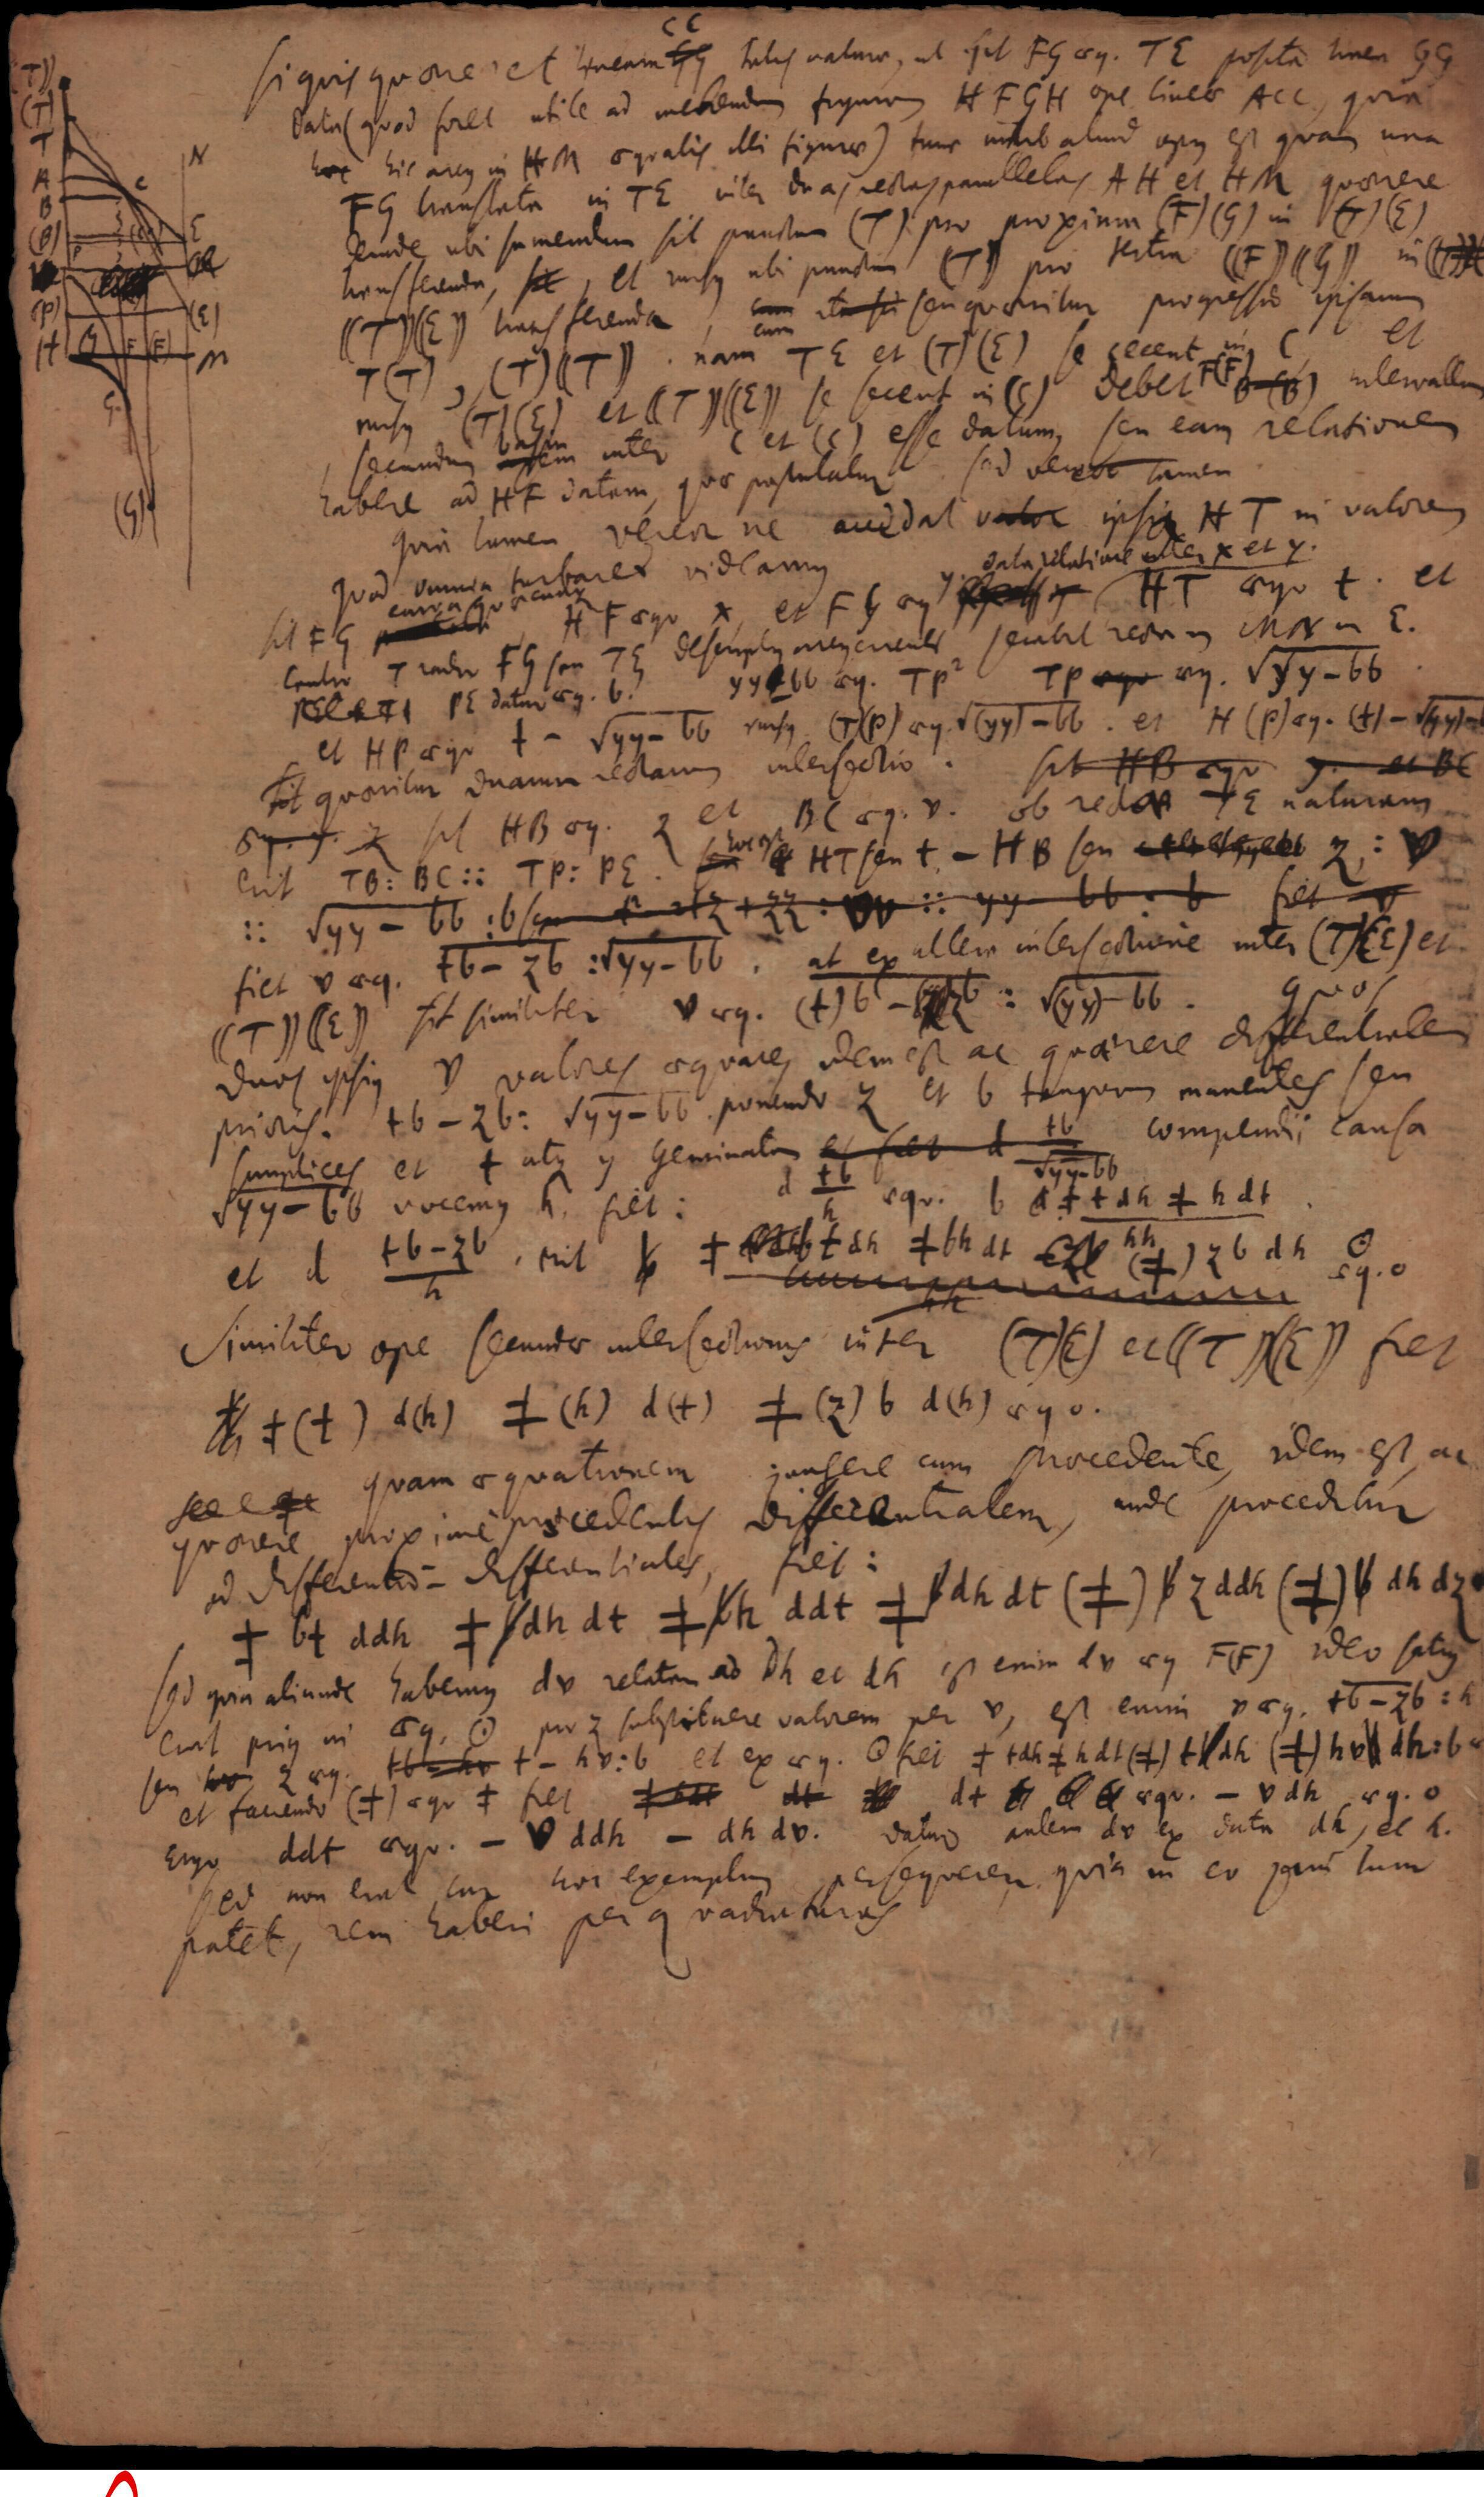 (T))
(T)
T
A
B
(B)
(P)
H
N
C
E
(E)
M
P
G
F (F)
G
(G)
CC
si quis quaereret lineam talis naturae, ut sit FG aeq. TE posita linea GG
data (quod foret utile ad metiendam figuram HFGH ope lineae ACC, quia
hic arcus in HM aequalis illi figurae) tunc nihil aliud opus est quam una
FG translata in TE inter duas rectas parallelas AH et HM quaerere
deinde ubi sumendum sit punctum (T) pro proxima (F)(G) in (T)(E)
transferenda, et rursus ubi punctum ((T)) pro tertia ((F))((G)) in
((T))((E)) transferenda, seu quaeritur progressio ipsarum
T(T), (T)((T)). nam TE et (T)(E) se secent in C et
rursus (T)(E) et ((T))((E)) se secent in (C) debet F(F) intervallum
secundum basin inter C et (C) esse datum, seu eam relationem
habere ad HF datam, quae postulatur. sed tamen
quia tamen vereor ne accedat ipsius HT in valorem
quod omnia turbaret videamus data relatione inter x et y.
sit FG curva quaecunque HF aequ x et FG aeq y HT aequ t. et
Centro T radio FG seu TE descriptus arcus circuli secabit rectam MN in E.
PE datur aeq. b. yy-bb aeq. TP² TP aeq. √yy-bb.
et HP aequ t - √yy-bb rursus (T)(P) aeq. √(yy)-bb. et H(P) aeq. (t) - √(yy)-bb
quaeritur duarum rectarum intersectio.
sit HB aeq. z et BC aeq. v. ob rectae TE naturam
erit TB : BC :: TP : PE. hoc est HT seu t, - HB seu z, : v
:: √yy - bb : b
fiet v aeq. tb - zb : √yy-bb. at ex altera intersectione inter (T)(E) et
((T))((E)) fit similiter v aeq. (t)b - zb : √(yy)-bb. quos
duos ipsius v valores aequare, idem est ac quaerere differentialem
prioris. tb - zb : √yy-bb. ponendo z et b tanquam manentes seu
simplices et t atque y geminatam compendii causa
√yy-bb vocemus h. fiet : d tb/h aequ. b ‡ t dh ‡ h dt / hh.
et d tb-zb/h, erit ‡ bt dh ‡ bh dt (‡) zb dh aeq. 0 ☉
Similiter ope secundae intersectionis inter (T)(E) et ((T))((E)) fiet
‡ (t) d(h) ‡ (h) d(t) ‡ (z) b d(h) aeq 0.
quam aequationem jungere cum praecedente, idem est, ac
quaerere proxime praecedentis differentialem, unde proceditur
ad differentio-differentiales, fiet :
‡ bt ddh ‡ dh dt ‡ h ddt ‡ dh dt (‡) z ddh (‡) dh dz
Sed quia aliunde habemus dv relatam ad h et dh est enim dv aeq F(F) ideo satius
erat prius in aeq. ☉ pro z substituere valorem per v, est enim v aeq. tb-zb : h
seu z aeq. t - hv : b et ex aeq. ☉ fiet ‡ tdh ‡ h dt (‡) t dh (‡) hv dh : b
et faciendo (‡) aequ ‡ fiet dt aequ. - v dh aeq. 0
Ergo ddt aequ. - v ddh - dh dv. datur autem dv ex data dh, et h.
Sed non erat cur hoc exemplum persequerer, quia in eo tum
patet, rem haberi per quadraturas